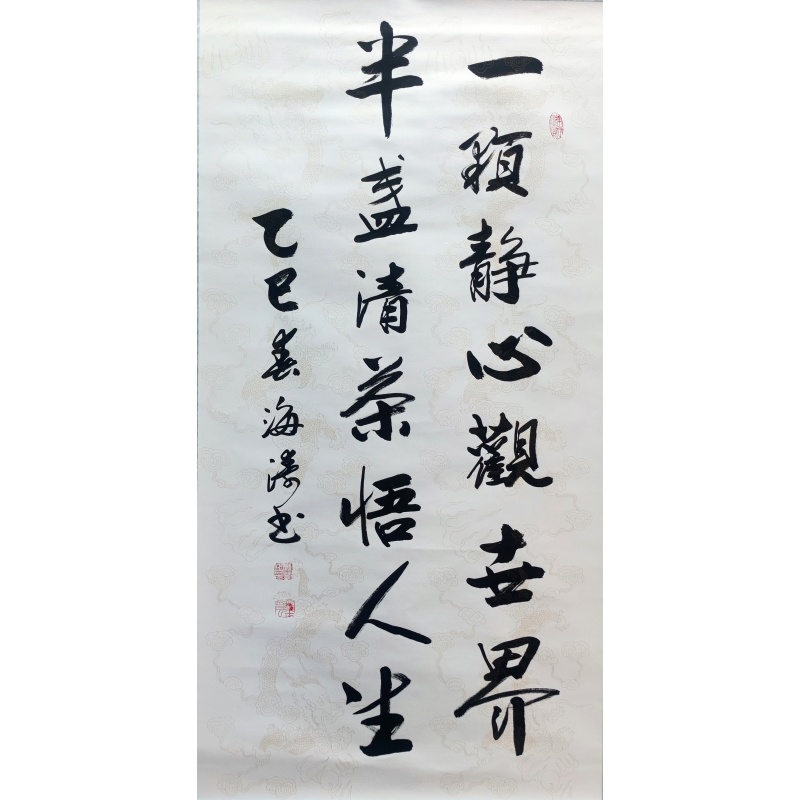 一颗静心觀世界
半盏清茶悟人生
乙巳春海涛书